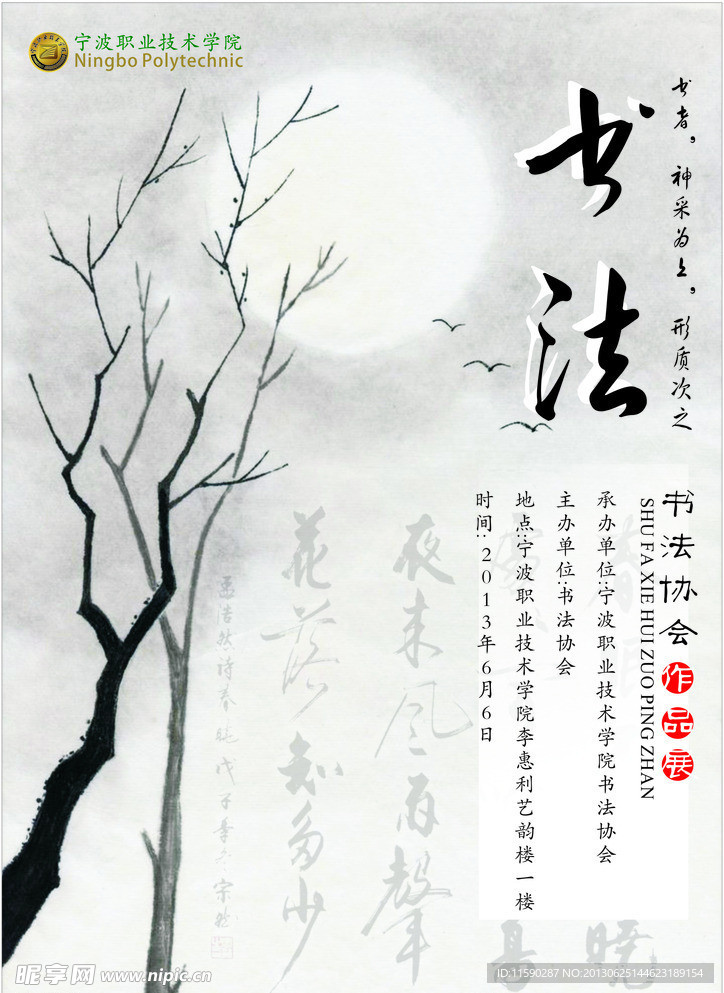 宁波职业技术学院
Ningbo Polytechnic
书者，神采为上，形质次之
书法
书法协会作品展
SHU FA XIE HUI ZUO PING ZHAN
承办单位:宁波职业技术学院书法协会
主办单位:书法协会
地点:宁波职业技术学院李惠利艺韵楼一楼
时间:2013年6月6日
夜来风雨声
花落知多少
孟浩然诗春
昵享网 www.nipic.cn
ID:11590287 NO:20130625144623189154